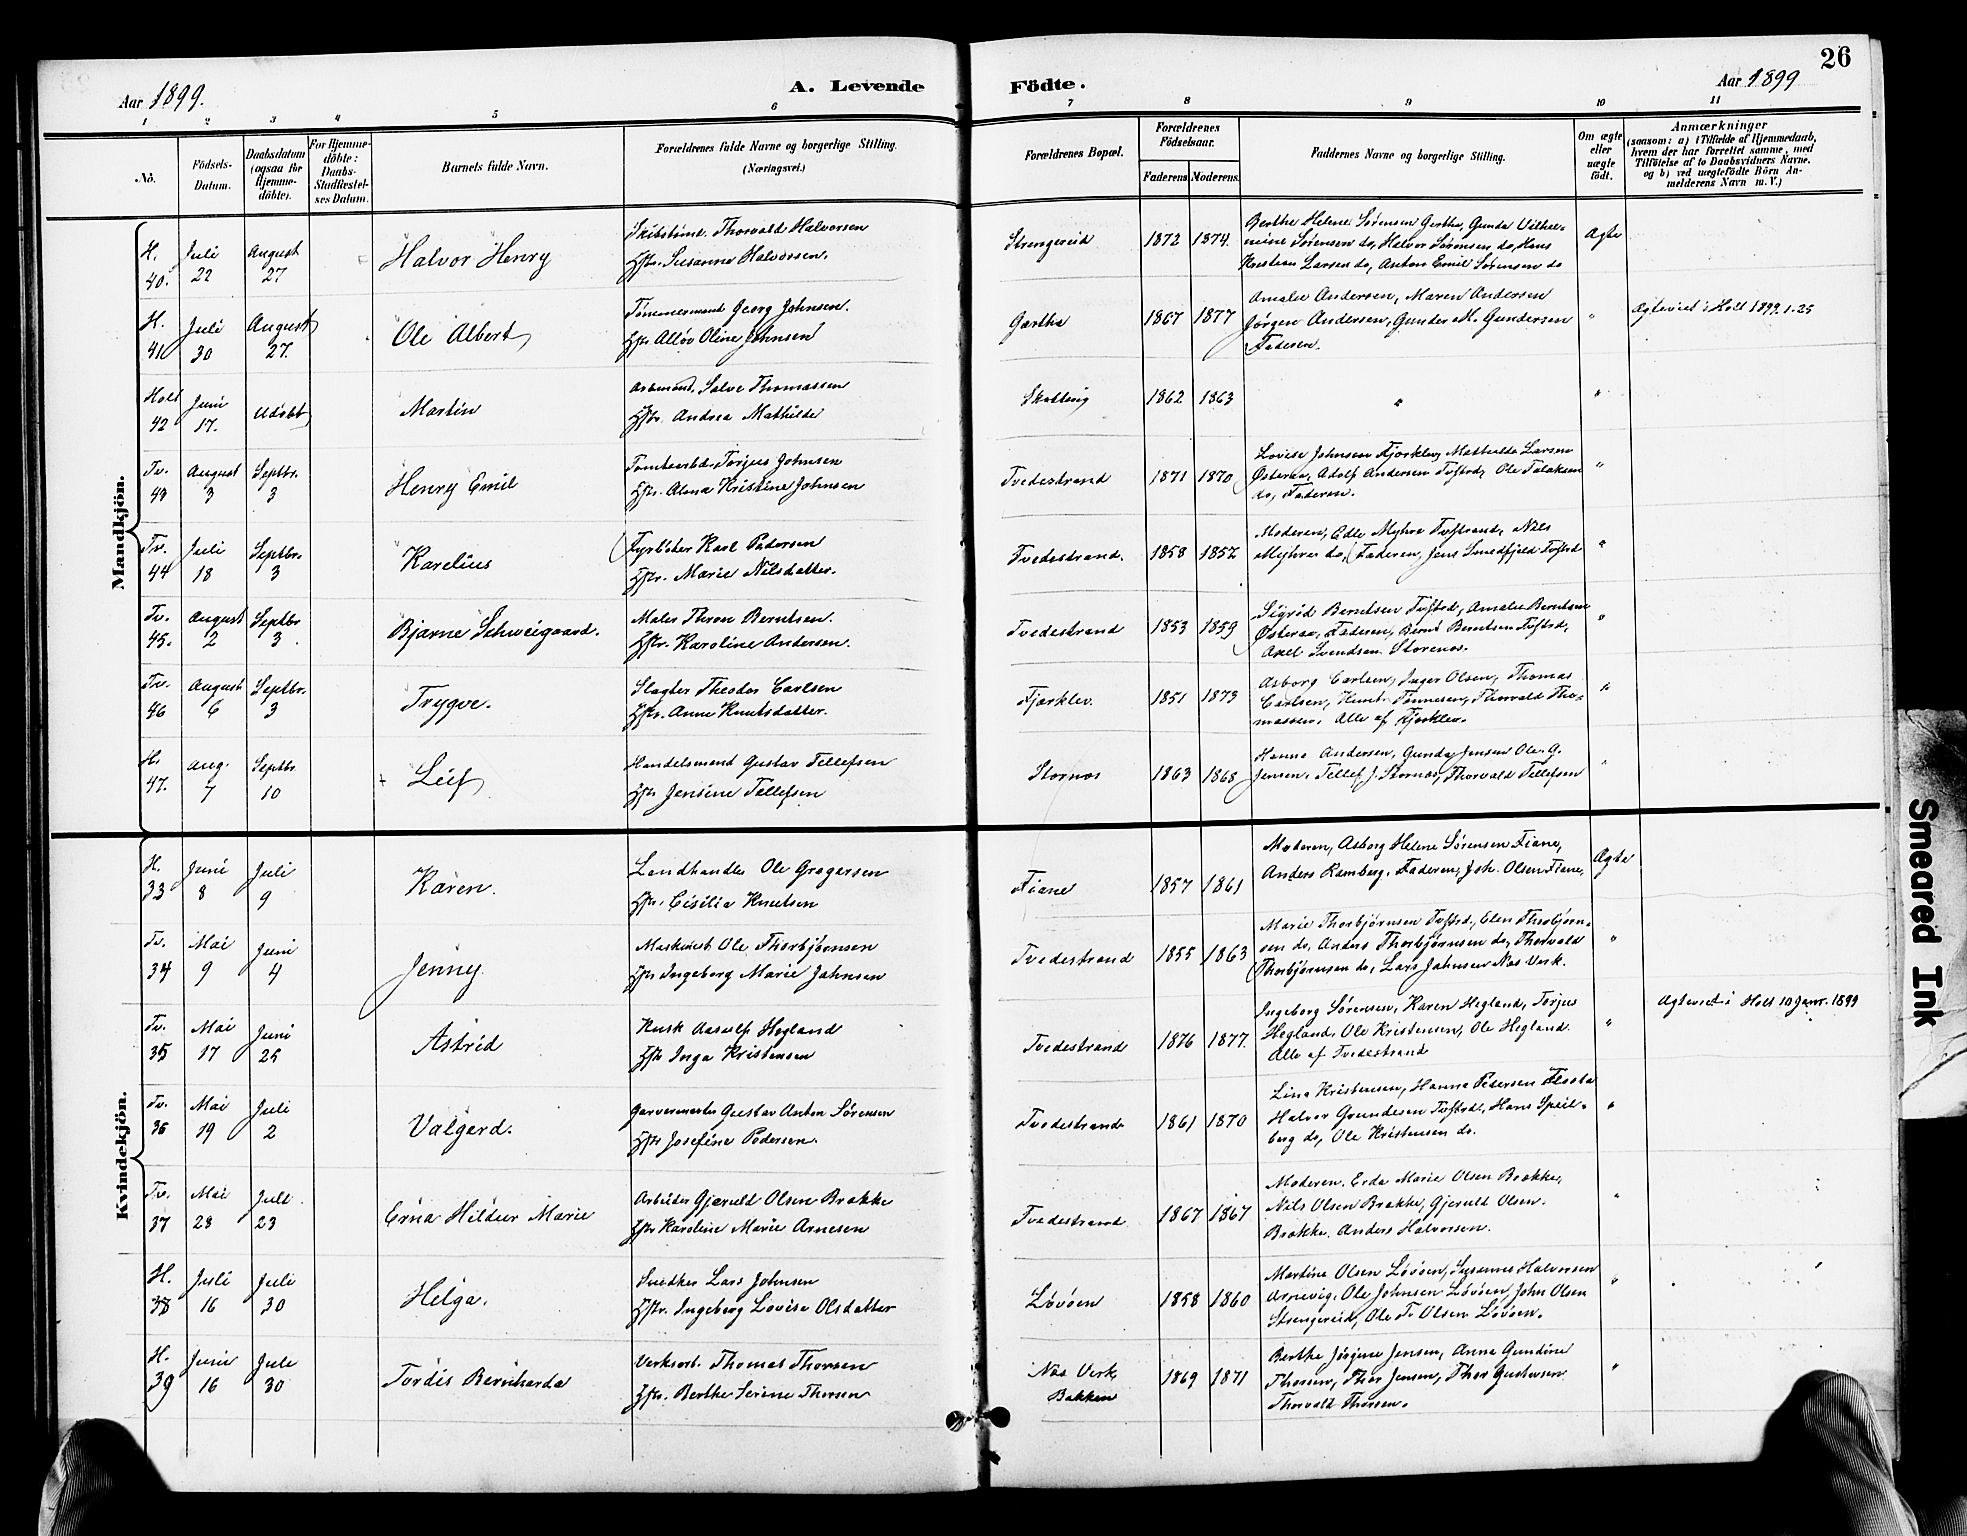 26
Aar 1899.
A. Levende Födte.
Aar 1899
1 2 3 4 5 6 7 8 9 10 11
No.
Födsels-
Datum.
Daabsdatum
(ogsaa for
Hjemme-
döbte).
For Hjemme-
döbte:
Daabs-
Stadfæstel-
ses Datum.
Barnets fulde Navn.
Forældrenes fulde Navne og borgerlige Stilling.
(Næringsvei.)
Forældrenes Bopæl.
Forældrenes
Födselsaar.
Faderens Moderens.
Faddernes Navne og borgerlige Stilling.
Om ægte
eller
uægte
födt.
Anmærkninger
(saasom: a) i Tilfælde af Hjemmedaab,
hvem der har forrettet samme, med
Tilföielse af to Daabsvidners Navne.
og b) ved uægtefödte Börn An-
melderens Navn m. V.)
Mandkjön.
H. 40. Juli 22 August 27
Halvor Henry
Thorvald Halvorsen
Hstr. Susanne Halvorsen.
Strengereid 1872 1874.
Berthe Helene Sørensen Gjerthe, Gunda Vilhel-
mine Sørensen do, Halvor Sørensen do, Hans
Kristian Larsen do, Anton Emil Sørensen do
Ægte
H. 41 Juli 30 August 27.
Ole Albert
Tømmermand Georg Johnsen.
Hstr Olline Johnsen
Gjerthe 1867 1877
Amalie Andersen, Maren Andersen
Jørgen Andersen, Gunder M. Gundersen
Faderen.
"
Ægteviet i Holt 1899.1.25
Holt 42 Juni 17. Udøbt
Martin
Arbmand. Salve Thomassen
Hstr. Andrea Mathilde
1862 1863
"
"
Tv. 43 August 3 Septbr. 3
Henry Emil
Tomtearbd. Torjus Johnsen
Hstr. Alma Kristine Johnsen
Tvedestrand 1871 1870
Lovise Johnsen Fjærklev, Mathilde Larsen
Østeraa, Adolf Andersen Tvstrd, Ole Tellaksen
do, Faderen.
"
Tv. 44 Juli 18 Septbr. 3
Karelius
Fyrbøter Karl Pedersen
Hstr. Marie Nilsdatter.
Tvedestrand. 1858 1857
Moderen, Edle Myhre Tvstrand, Nils
Myhre do, Faderen, Jens Smedfjeld Tvstrd
"
Tv. 45. August 2 Septbr 3
Bjarne Schweigaard.
Maler Thron Berntsen.
Hstr. Karoline Andersen.
Tvedestrand 1853 1859
Sigrid Berntsen Tvstrd, Amalie Berntsen
Østeraa, Faderen, Bernt Berntsen Tvstrd,
Axel Svendsen Storenos.
"
Tv. 46 August 6 Septbr. 3
Trygve.
Slagter Theodor Carlsen
Hstr. Anne Knutsdatter.
Fjærklev. 1851 1873
Asborg Carlsen, Inger Olsen, Thomas
Carlsen, Knut Tønnesen, Thorvald Tho-
massen. Alle af Fjærklev.
"
H. 47. Aug. 7 Septbr 10
Leif
Handelsmand Gustav Tellefsen
Hstr Jensine Tellefsen
Stornos 1863 1868
Hanna Andersen, Gunda Jensen Ole G.
Jensen, Tellef J. Stornos, Thorvald Tellefsen
"
Kvindekjön.
H. 33 Juni 8 Juli 9
Karen.
Landhandler Ole Gregersen
Hstr. Cisilia Knutsen
Fiane 1857 1861
Moderen, Asborg Helene Sørensen Fiane,
Anders Ramberg, Faderen, Joh. Olsen Fiane,
Ægte
Tv. 34 Mai 9 Juni 4
Jenny
Maskinist Ole Thorbjørnsen
Hstr Ingeborg Marie Johnsen
Tvedestrand 1855 1863
Marie Thorbjørnsen Tvstrd, Elen Thorbjørn-
sen do, Anders Thorbjørnsen do, Thorvald
Thorbjørnsen do, Lars Johnsen Næs Verk.
"
Tv. 35 Mai 17 Juni 25
Astrid
Kusk Aasulf Hegland
Hstr Inga Kristensen
Tvedestrand 1876 1877.
Ingeborg Sørensen, Karen Hegland, Torjus
Hegland, Ole Kristensen, Ole Hegland.
Alle af Tvedestrand
"
Ægteviet i Holt 10 Janr. 1899
Tv. 36 Mai 19 Juli 2
Valgerd.
Garvermester Gustav Anton Sørensen
Hstr Josefine Pedersen.
Tvedestrand 1861 1870
Lina Kristensen, Hanna Petersen Flosta
Halvor Gundesen Tvstrd, Hans Speil-
berg do, Ole Kristensen do.
"
Tv. 37 Mai 28 Juli 23
Erna Hildur Marie
Arbeider Gjeruld Olsen Brække
Hstr Karoline Marie Arnesen
Tvedestrand 1867 1867
Moderen. Erda Marie Olsen Brække,
Nils Olsen Brække, Gjeruld Olsen.
Brække. Anders Halvorsen.
"
H. 38 Juli 16 Juli 30
Helga.
Snedker Lars Johnsen
Hstr. Ingeborg Lovise Olsdatter
Løvøen 1858 1860
Martine Olsen Løvøen, Halvorsen
Arnevig, Ole Johnsen Løvøen, John Olsen
Strengereid, Ole Tv Olsen Løvøen.
"
H. 39 Juni 16 Juli 30
Tordis Bernharda
Verksarb. Thomas Thorsen
Hstr. Berthe Serine Thorsen
Næs Verk,
Bakken 1869 1871
Berthe Jørgine Jensen, Anna Gundine
Thorsen, Thor Jensen, Thor Gustavsen
Thorvald Thorsen.
"
Smeared Ink